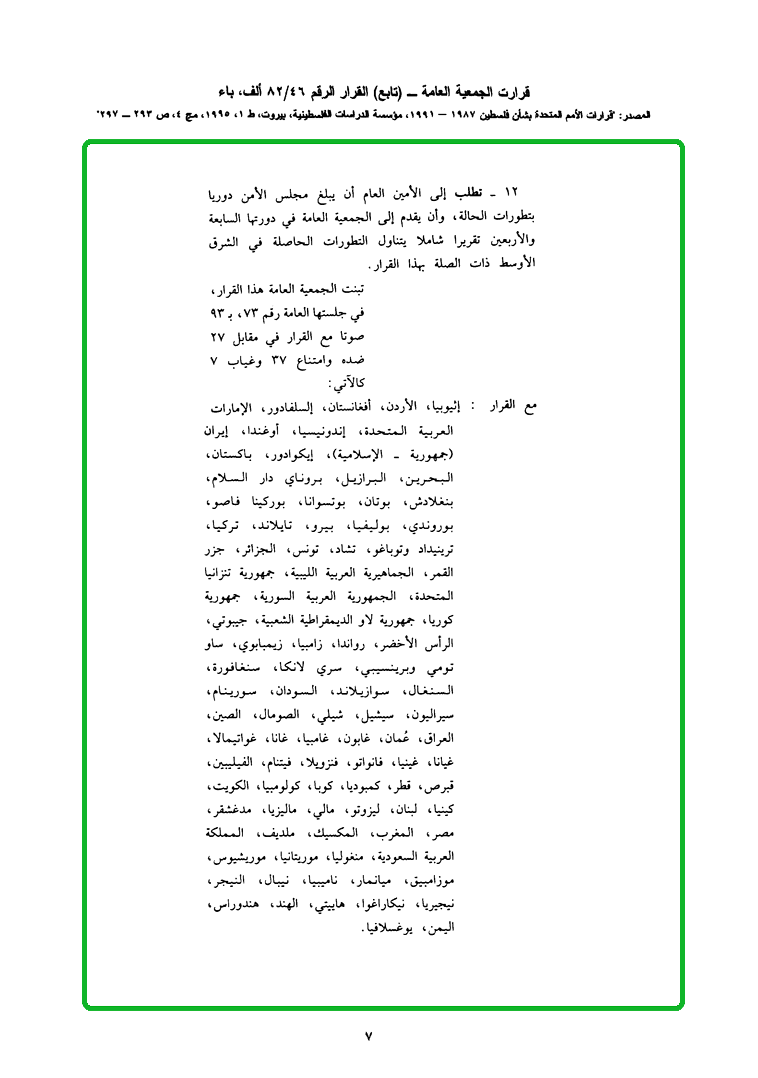 قرارت الجمعية العامة ــ (تابع) القرار الرقم ٨٢/٤٦ ألف، باء
المصدر: "قرارات الأمم المتحدة بشأن فلسطين ١٩٨٧ – ١٩٩١، مؤسسة الدراسات الفلسطينية، بيروت، ط ١، ١٩٩٥، مج ٤، ص ٢٩٣ ــ ٢٩٧"
١٢ ـ تطلب إلى الأمين العام أن يبلغ مجلس الأمن دوريا
بتطورات الحالة، وأن يقدم إلى الجمعية العامة في دورتها السابعة
والأربعين تقريرا شاملا يتناول التطورات الحاصلة في الشرق
الأوسط ذات الصلة بهذا القرار.
تبنت الجمعية العامة هذا القرار،
في جلستها العامة رقم ٧٣، بـ ٩٣
صوتا مع القرار في مقابل ٢٧
ضده وامتناع ٣٧ وغياب ٧
كالآتي:
مع القرار : إثيوبيا، الأردن، أفغانستان، إلسلفادور، الإمارات
العربية المتحدة، إندونيسيا، أوغندا، إيران
(جمهورية ـ الإسلامية)، إيكوادور، باكستان،
البحرين، البرازيل، بروناي دار السلام،
بنغلادش، بوتان، بوتسوانا، بوركينا فاصو،
بوروندي، بوليفيا، بيرو، تايلاند، تركيا،
ترينيداد وتوباغو، تشاد، تونس، الجزائر، جزر
القمر، الجماهيرية العربية الليبية، جمهورية تنزانيا
المتحدة، الجمهورية العربية السورية، جمهورية
كوريا، جمهورية لاو الديمقراطية الشعبية، جيبوتي،
الرأس الأخضر، رواندا، زامبيا، زيمبابوي، ساو
تومي وبرينسيبي، سري لانكا، سنغافورة،
السنغال، سوازيلاند، السودان، سورينام،
سيراليون، سيشيل، شيلي، الصومال، الصين،
العراق، عُمان، غابون، غامبيا، غانا، غواتيمالا،
غيانا، غينيا، فانواتو، فنزويلا، فيتنام، الفيليبين،
قبرص، قطر، كمبوديا، كوبا، كولومبيا، الكويت،
كينيا، لبنان، ليزوتو، مالي، ماليزيا، مدغشقر،
مصر، المغرب، المكسيك، ملديف، المملكة
العربية السعودية، منغوليا، موريتانيا، موريشيوس،
موزامبيق، ميانمار، ناميبيا، نيبال، النيجر،
نيجيريا، نيكاراغوا، هاييتي، الهند، هندوراس،
اليمن، يوغسلافيا.
٧